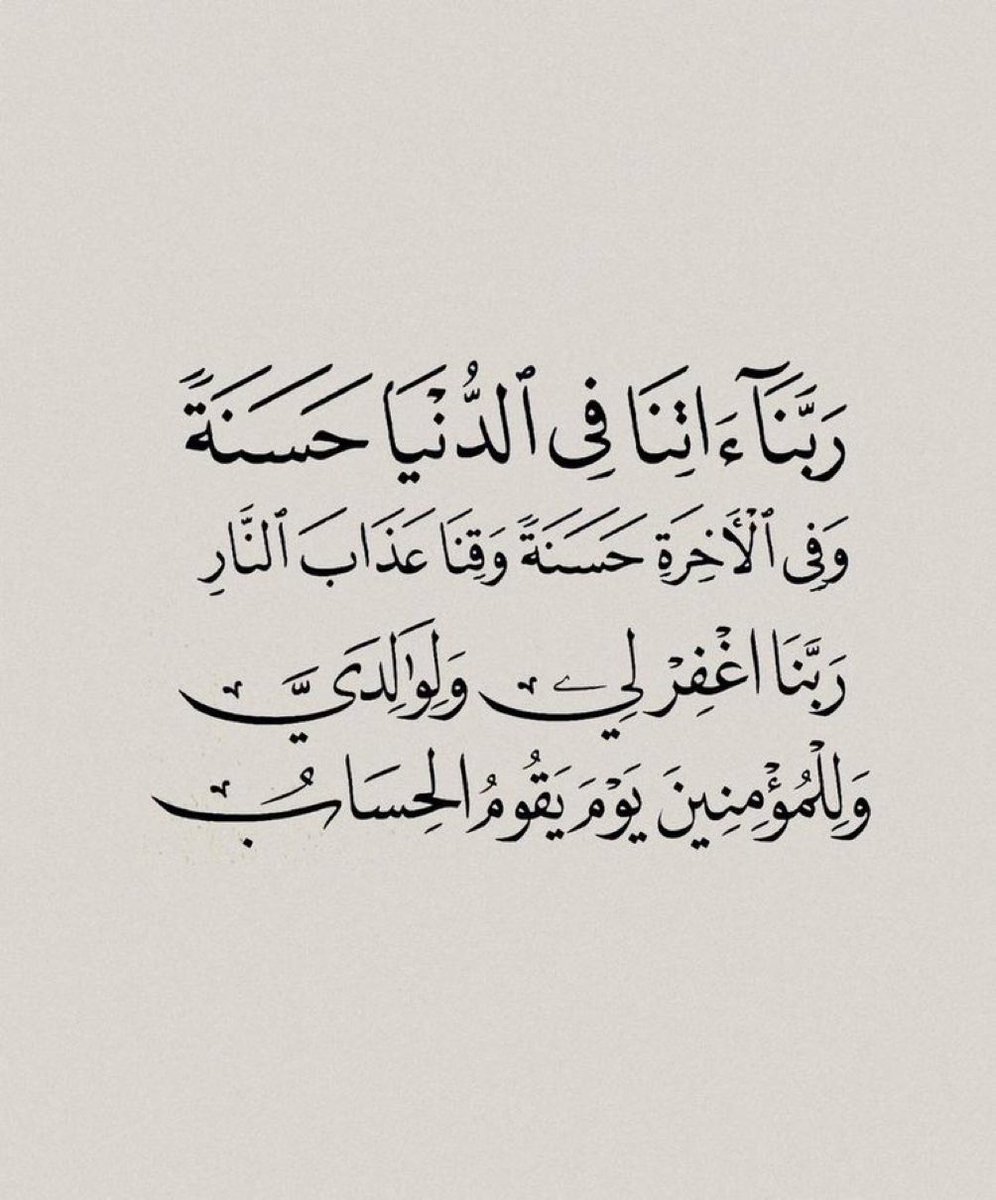 رَبَّنَآ ءَاتِنَا فِى ٱلدُّنْيَا حَسَنَةً
وَفِى ٱلْأَخِرَةِ حَسَنَةً وَقِنَا عَذَابَ ٱلنَّارِ
رَبَّنَا اغْفِرْ لِي وَلِوَٰلِدَيَّ
وَلِلْمُؤْمِنِينَ يَوْمَ يَقُومُ الْحِسَابُ